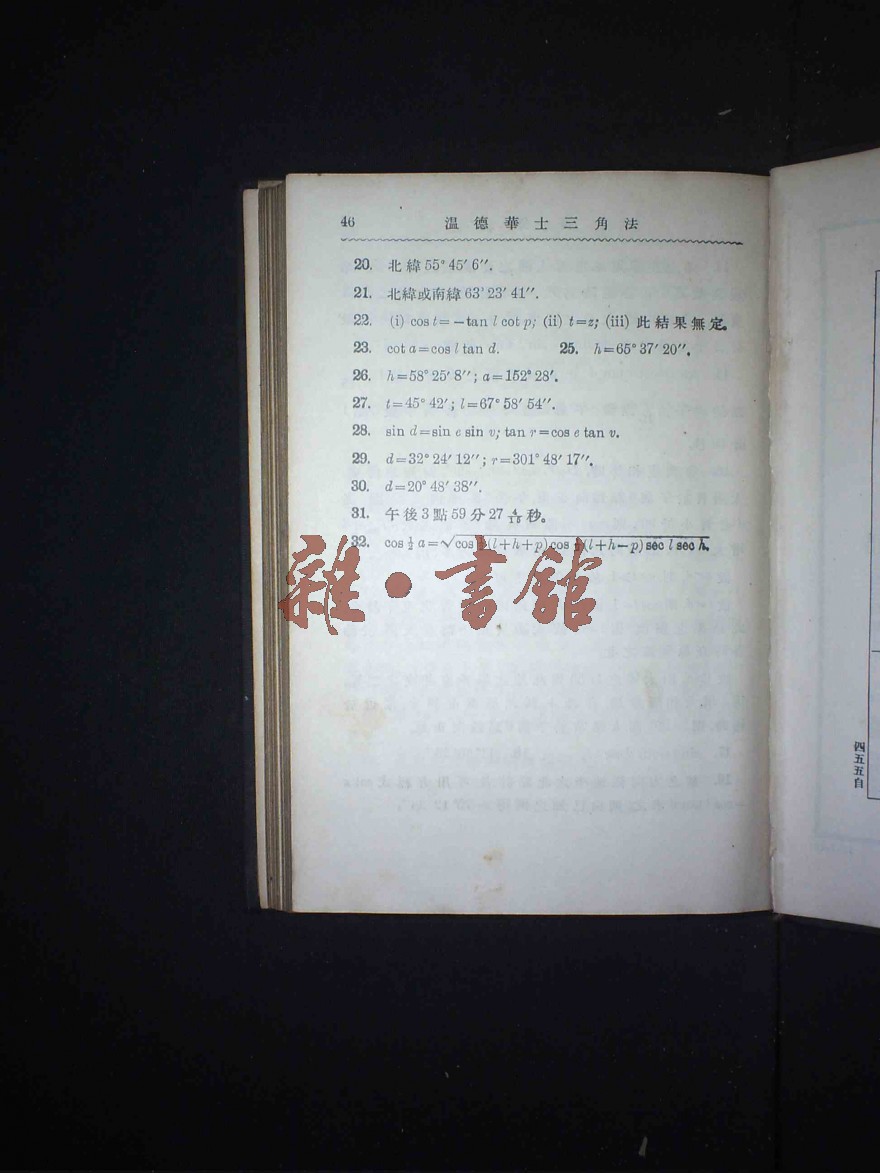 46 溫德華士三角法
20. 北緯 55° 45′ 6″.
21. 北緯或南緯 63° 23′ 41″.
22. (i) cos t= −tan l cot p; (ii) t=z; (iii) 此結果無定。
23. cot a=cos l tan d. 25. h=65° 37′ 20″.
26. h=58° 25′ 8″; a=152° 28′.
27. t=45° 42′; l=67° 58′ 54″.
28. sin d=sin e sin v; tan r=cos e tan v.
29. d=32° 24′ 12″; r=301° 48′ 17″.
30. d=20° 48′ 38″.
31. 午後 3 點 59 分 27 4/15 秒。
32. cos ½ a=√cos (l+h+p) cos ½(l+h−p) sec l sec h.
雜·書館
四五五自